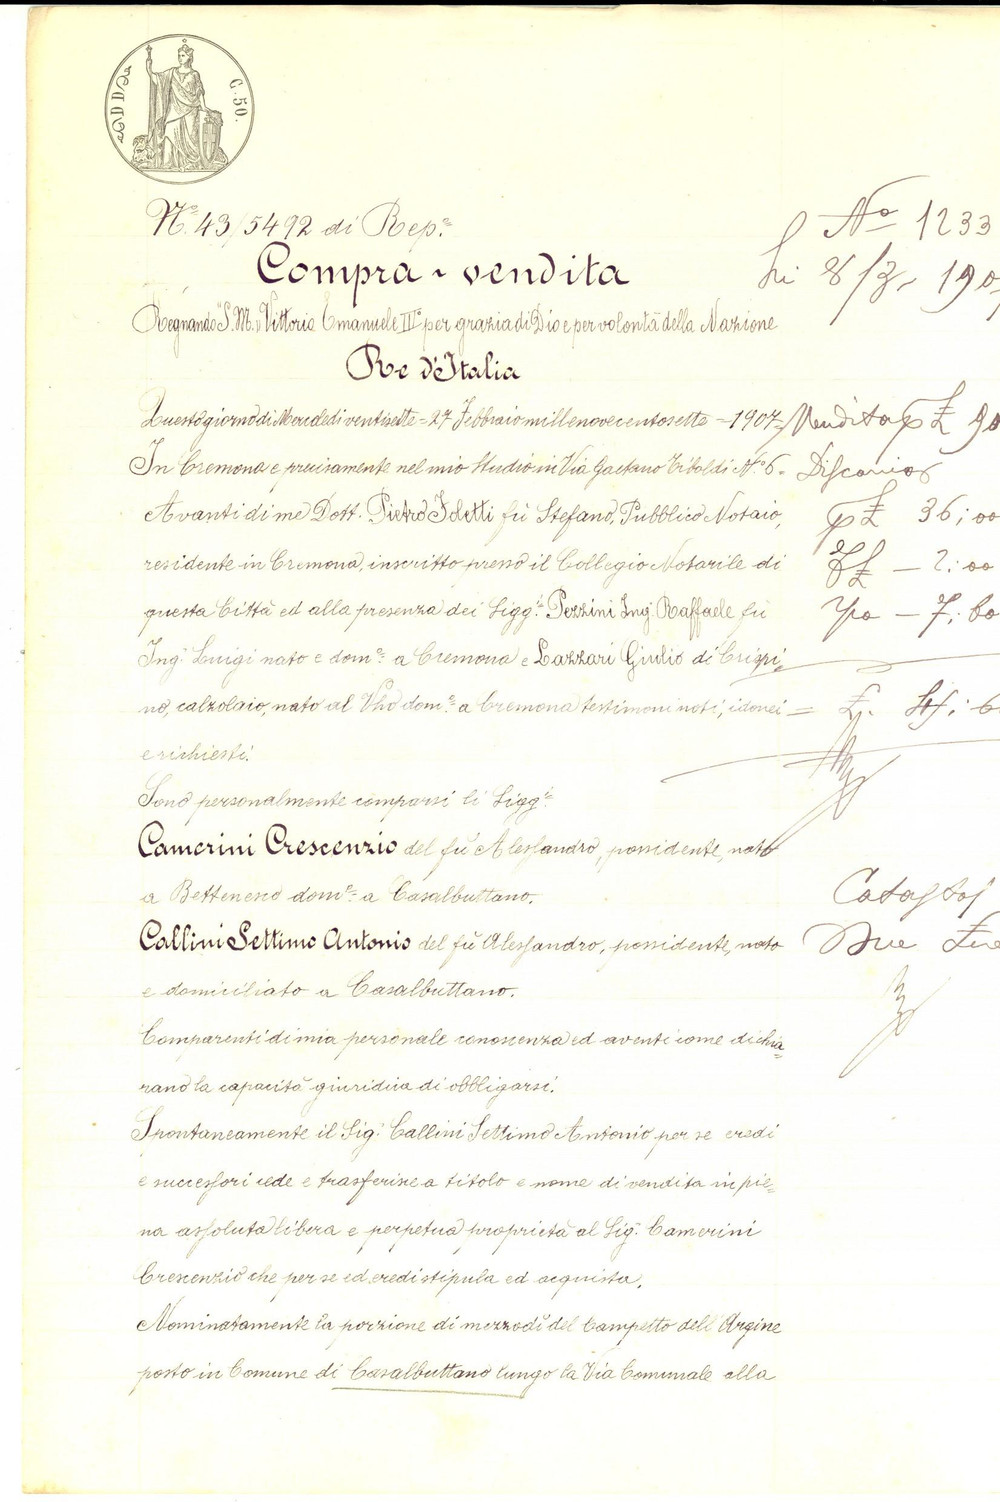 C. 50.
N.° 43/5492 di Rep.°
Compra-vendita
Regnando S. M. Vittorio Emanuele III° per grazia di Dio e per volontà della Nazione
Re d'Italia
Questo giorno di Mercoledì ventisette - 27 Febbraio millenovecentosette - 1907
In Cremona e precisamente nel mio Studio in Via Gaetano Tibaldi N.° 6.
Avanti di me Dott. Pietro Foletti fu Stefano, Pubblico Notaio,
residente in Cremona, inscritto presso il Collegio Notarile di
questa Città ed alla presenza dei Sigg.i Pezzini Ing. Raffaele fu
Ing. Luigi nato e dom.° a Cremona e Lazzari Giulio di Crispi=
no, calzolaio, nato al Vho dom.° a Cremona testimoni noti, idonei
e richiesti.
Sono personalmente comparsi li Sigg.i
Camerini Crescenzio del fu Alessandro, possidente, nato
a Bettenesco dom.° a Casalbuttano.
Callini Settimo Antonio del fu Alessandro, possidente, nato
e domiciliato a Casalbuttano.
Comparenti di mia personale conoscenza ed aventi come dichia=
rano la capacità giuridica di obbligarsi.
Spontaneamente il Sig. Callini Settimo Antonio per se eredi
e successori cede e trasferisce a titolo e nome di vendita in pie=
na assoluta libera e perpetua proprietà al Sig. Camerini
Crescenzio che per se ed eredi stipula ed acquista.
Nominatamente la porzione di mezzodì del Campetto dell'Argine
posto in Comune di Casalbuttano lungo la Via Comunale alla
N° 1233
li 8/3. 190
Vendita
£ 36,00
2,00
7,60
£.
Catasto
Due